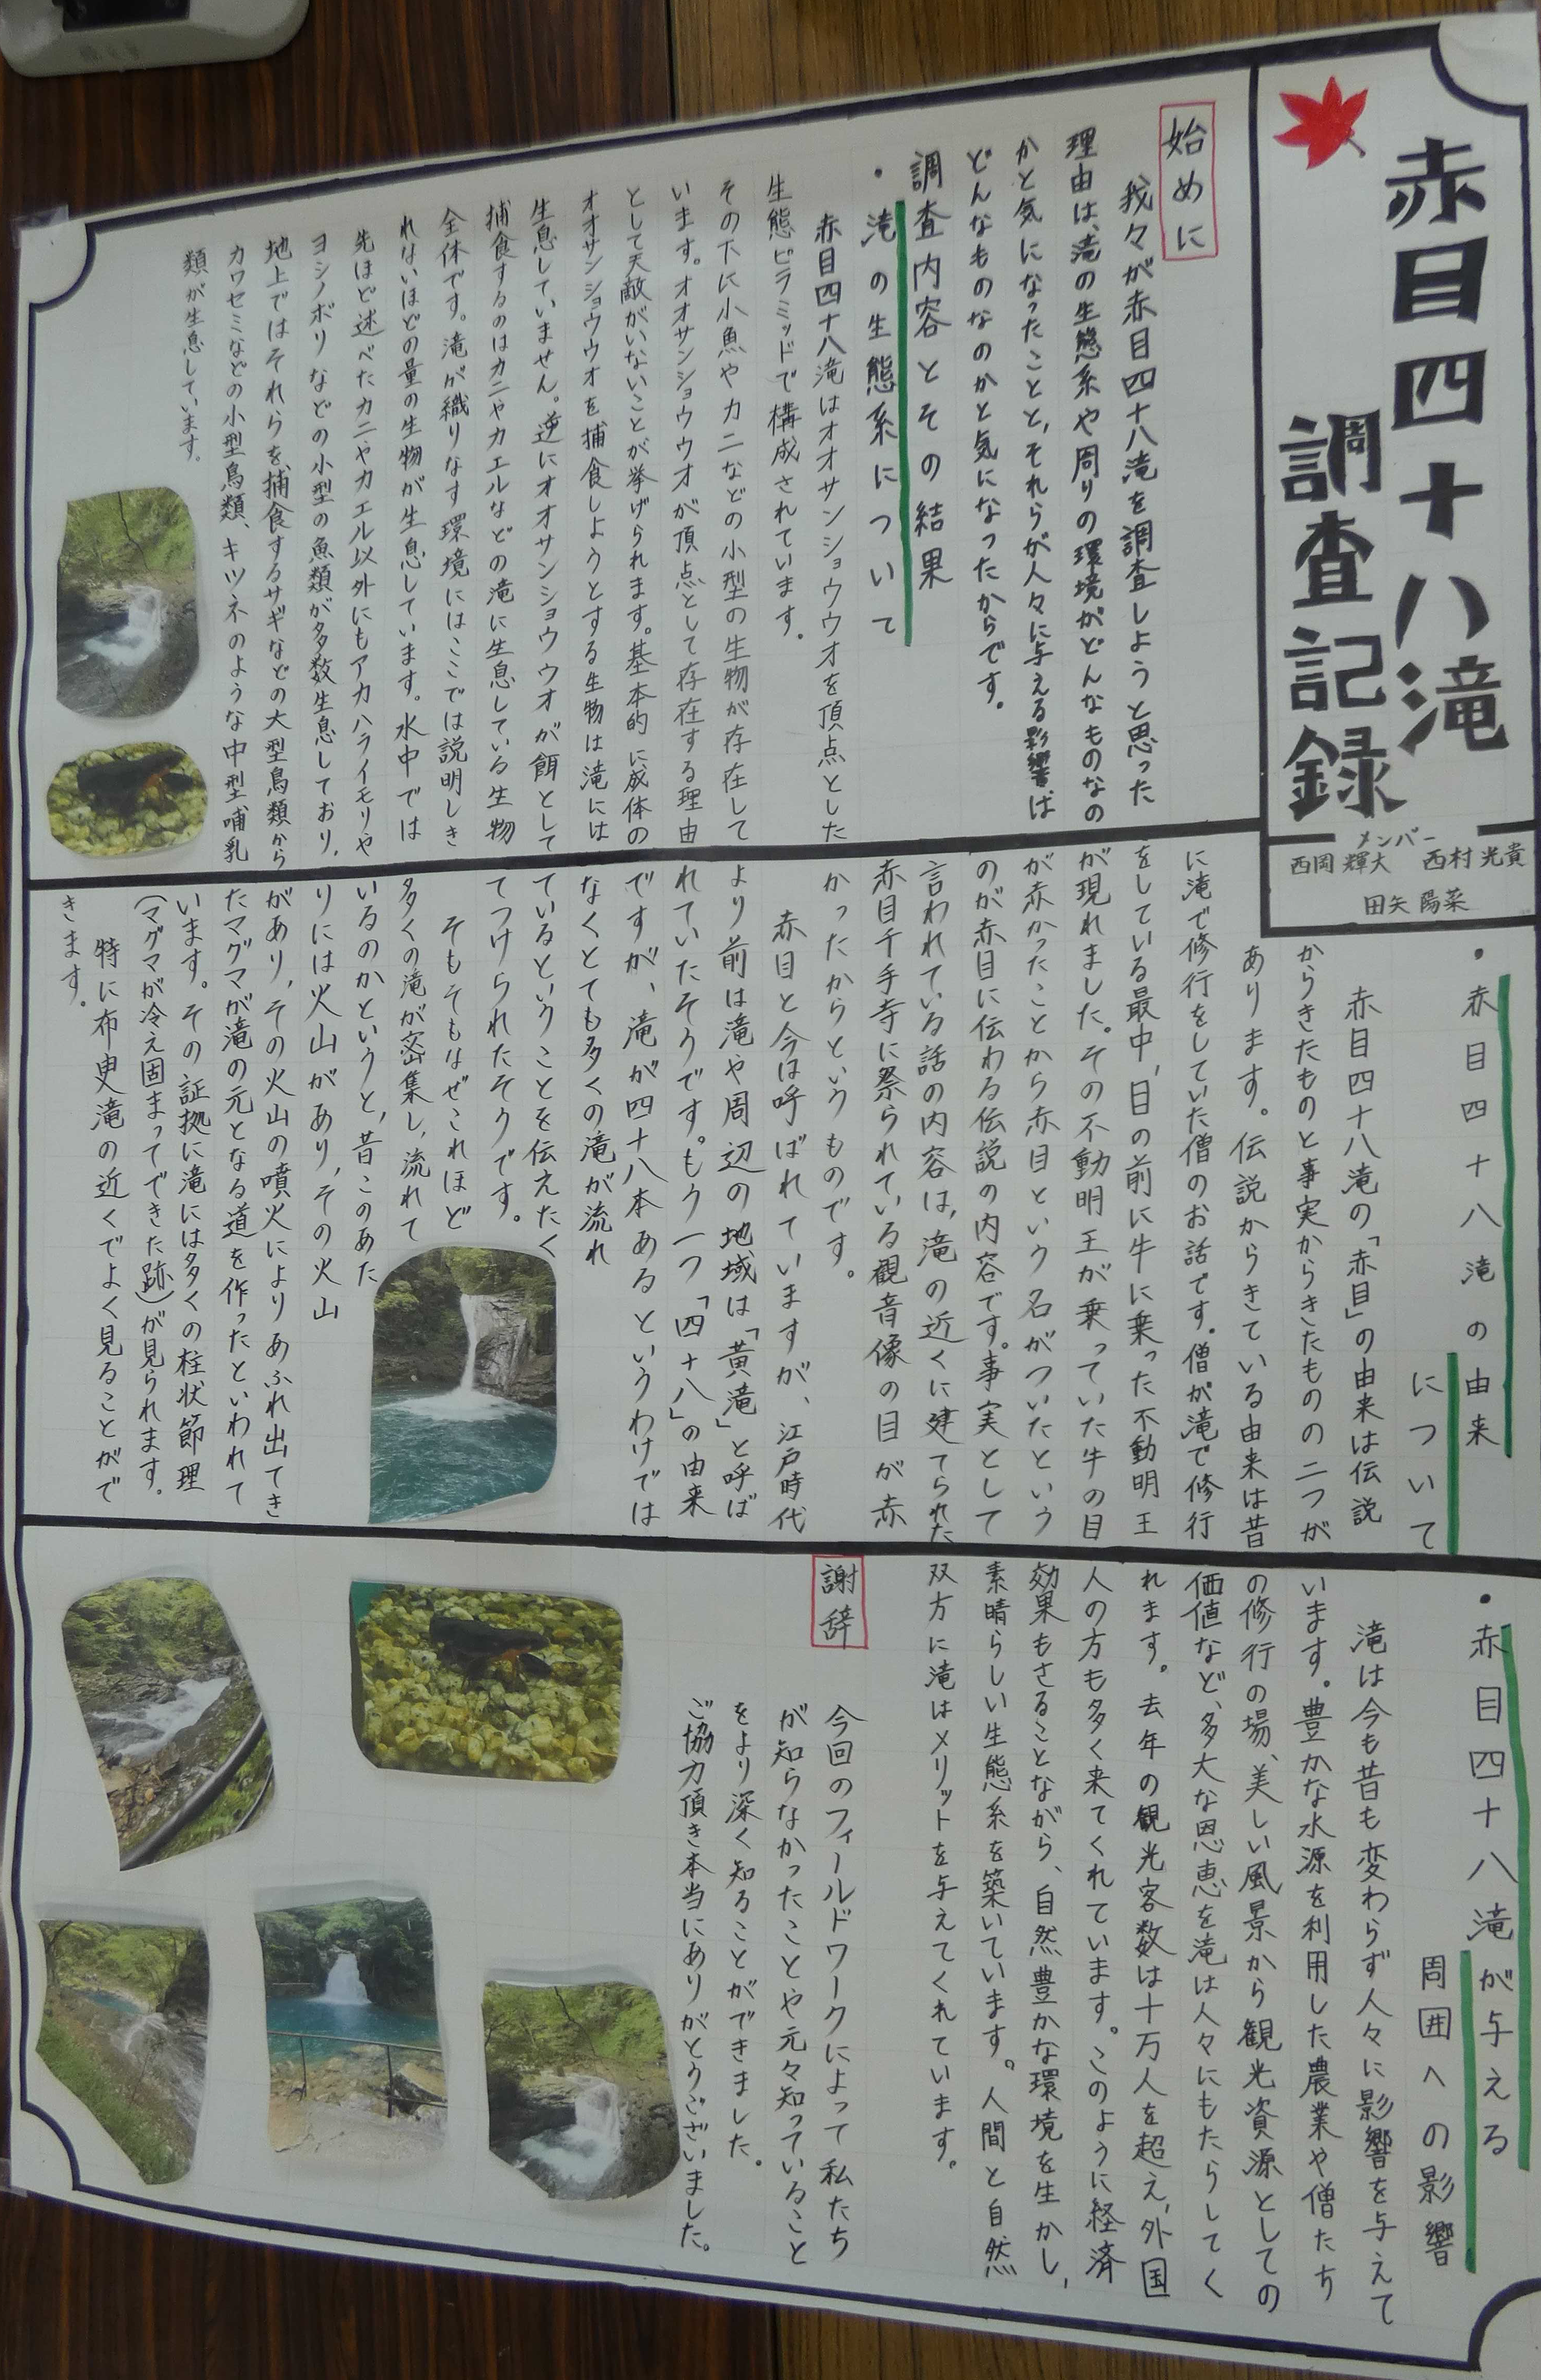 赤目四十八滝
調査記録
メンバー
西岡輝大 西村光貴
田矢陽菜
始めに
我々が赤目四十八滝を調査しようと思った
理由は、滝の生態系や周りの環境がどんなものなの
かと気になったことと、それらが人々に与える影響は
どんなものなのかと気になったからです。
調査内容とその結果
・滝の生態系について
赤目四十八滝はオオサンショウウオを頂点とした
生態ピラミッドで構成されています。
その下に小魚やカニなどの小型の生物が存在して
います。オオサンショウウオが頂点として存在する理由
として天敵がいないことが挙げられます。基本的に成体の
オオサンショウウオを捕食しようとする生物は滝には
生息していません。逆にオオサンショウウオが餌として
捕食するのはカニやカエルなどの滝に生息している生物
全体です。滝が織りなす環境にはここでは説明しき
れないほどの量の生物が生息しています。水中では
先ほど述べたカニやカエル以外にもアカハライモリや
ヨシノボリなどの小型の魚類が多数生息しており、
地上ではそれらを捕食するサギなどの大型鳥類から
カワセミなどの小型鳥類、キツネのような中型哺乳
類が生息しています。
・赤目四十八滝の由来
について
赤目四十八滝の「赤目」の由来は伝説
からきたものと事実からきたものの二つが
あります。伝説からきている由来は昔
に滝で修行をしていた僧のお話です。僧が滝で修行
をしている最中、目の前に牛に乗った不動明王
が現れました。その不動明王が乗っていた牛の目
が赤かったことから赤目という名がついたという
のが赤目に伝わる伝説の内容です。事実として
言われている話の内容は、滝の近くに建てられた
赤目千手寺に祭られている観音像の目が赤
かったからというものです。
赤目と今は呼ばれていますが、江戸時代
より前は滝や周辺の地域は「黄滝」と呼ば
れていたそうです。もう一つ「四十八」の由来
ですが、滝が四十八本あるというわけでは
なくとても多くの滝が流れ
ているということを伝えたく
てつけられたそうです。
そもそもなぜこれほど
多くの滝が密集し、流れて
いるのかというと、昔このあた
りには火山があり、その火山
があり、その火山の噴火によりあふれ出てき
たマグマが滝の元となる道を作ったといわれて
います。その証拠に滝には多くの柱状節理
(マグマが冷え固まってできた跡)が見られます。
特に布曳滝の近くでよく見ることがで
きます。
・赤目四十八滝が与える
周囲への影響
滝は今も昔も変わらず人々に影響を与えて
います。豊かな水源を利用した農業や僧たち
の修行の場、美しい風景から観光資源としての
価値など、多大な恩恵を滝は人々にもたらしてく
れます。去年の観光客数は十万人を超え、外国
人の方も多く来てくれています。このように経済
効果もさることながら、自然豊かな環境を生かし、
素晴らしい生態系を築いています。人間と自然
双方に滝はメリットを与えてくれています。
謝辞
今回のフィールドワークによって私たち
が知らなかったことや元々知っていること
をより深く知ることができました。
ご協力頂き本当にありがとうございました。